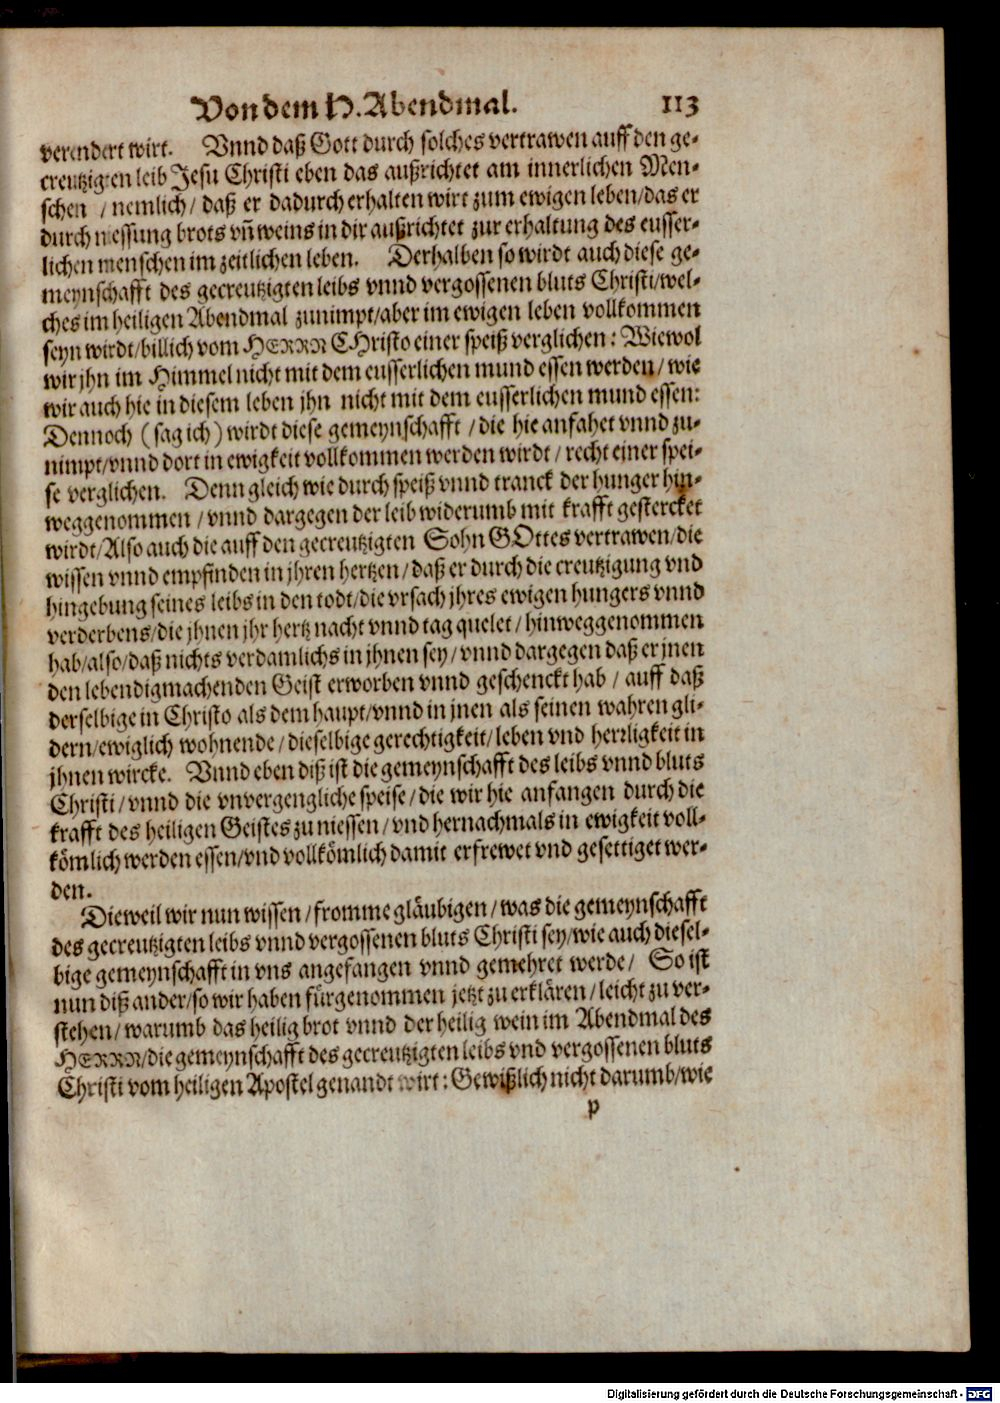 Von dem H. Abendmal. 113
verendert wirt. Vnnd daß Gott durch solches vertrawen auff den ge-
creutzigten leib Jesu Christi eben das außrichtet am innerlichen Men-
schen / nemlich / daß er dadurch erhalten wirt zum ewigen leben / das er
durch niessung brots vn̄ weins in dir außrichtet zur erhaltung des eusser-
lichen menschen im zeitlichen leben. Derhalben so wirdt auch diese ge-
meynschafft des gecreutzigten leibs vnnd vergossenen bluts Christi / wel-
ches im heiligen Abendmal zunimpt / aber im ewigen leben vollkommen
seyn wirdt / billich vom HERRN CHristo einer speiß verglichen: Wiewol
wir jhn im Himmel nicht mit dem eusserlichen mund essen werden / wie
wir auch hie in diesem leben jhn nicht mit dem eusserlichen mund essen:
Dennoch (sag ich) wirdt diese gemeynschafft / die hie anfahet vnnd zu-
nimpt / vnnd dort in ewigkeit vollkommen werden wirdt / recht einer spei-
se verglichen. Denn gleich wie durch speiß vnnd tranck der hunger hin-
weggenommen / vnnd dargegen der leib widerumb mit krafft gestercket
wirdt / Also auch die auff den gecreutzigten Sohn GOttes vertrawen / die
wissen vnnd empfinden in jhren hertzen / daß er durch die creutzigung vnd
hingebung seines leibs in den todt / die vrsach jhres ewigen hungers vnnd
verderbens / die jhnen jhr hertz nacht vnnd tag quelet / hinweggenommen
hab / also / daß nichts verdamlichs in jhnen sey / vnnd dargegen daß er jnen
den lebendigmachenden Geist erworben vnnd geschenckt hab / auff daß
derselbige in Christo als dem haupt / vnnd in jnen als seinen wahren gli-
dern / ewiglich wohnende / dieselbige gerechtigkeit / leben vnd herrligkeit in
jhnen wircke. Vnnd eben diß ist die gemeynschafft des leibs vnnd bluts
Christi / vnnd die vnvergengliche speise / die wir hie anfangen durch die
krafft des heiligen Geistes zu niessen / vnd hernachmals in ewigkeit voll-
kömlich werden essen / vnd vollkömlich damit erfrewet vnd gesettiget wer-
den.
Dieweil wir nun wissen / fromme gläubigen / was die gemeynschafft
des gecreutzigten leibs vnnd vergossenen bluts Christi sey / wie auch diesel-
bige gemeynschafft in vns angefangen vnnd gemehret werde / So ist
nun diß ander / so wir haben fürgenommen jetzt zu erklären / leicht zu ver-
stehen / warumb das heilig brot vnnd der heilig wein im Abendmal des
HERRN / die gemeynschafft des gecreutzigten leibs vnd vergossenen bluts
Christi vom heiligen Apostel genandt wirt: Gewißlich nicht darumb / wie
p
Digitalisierung gefördert durch die Deutsche Forschungsgemeinschaft - DFG